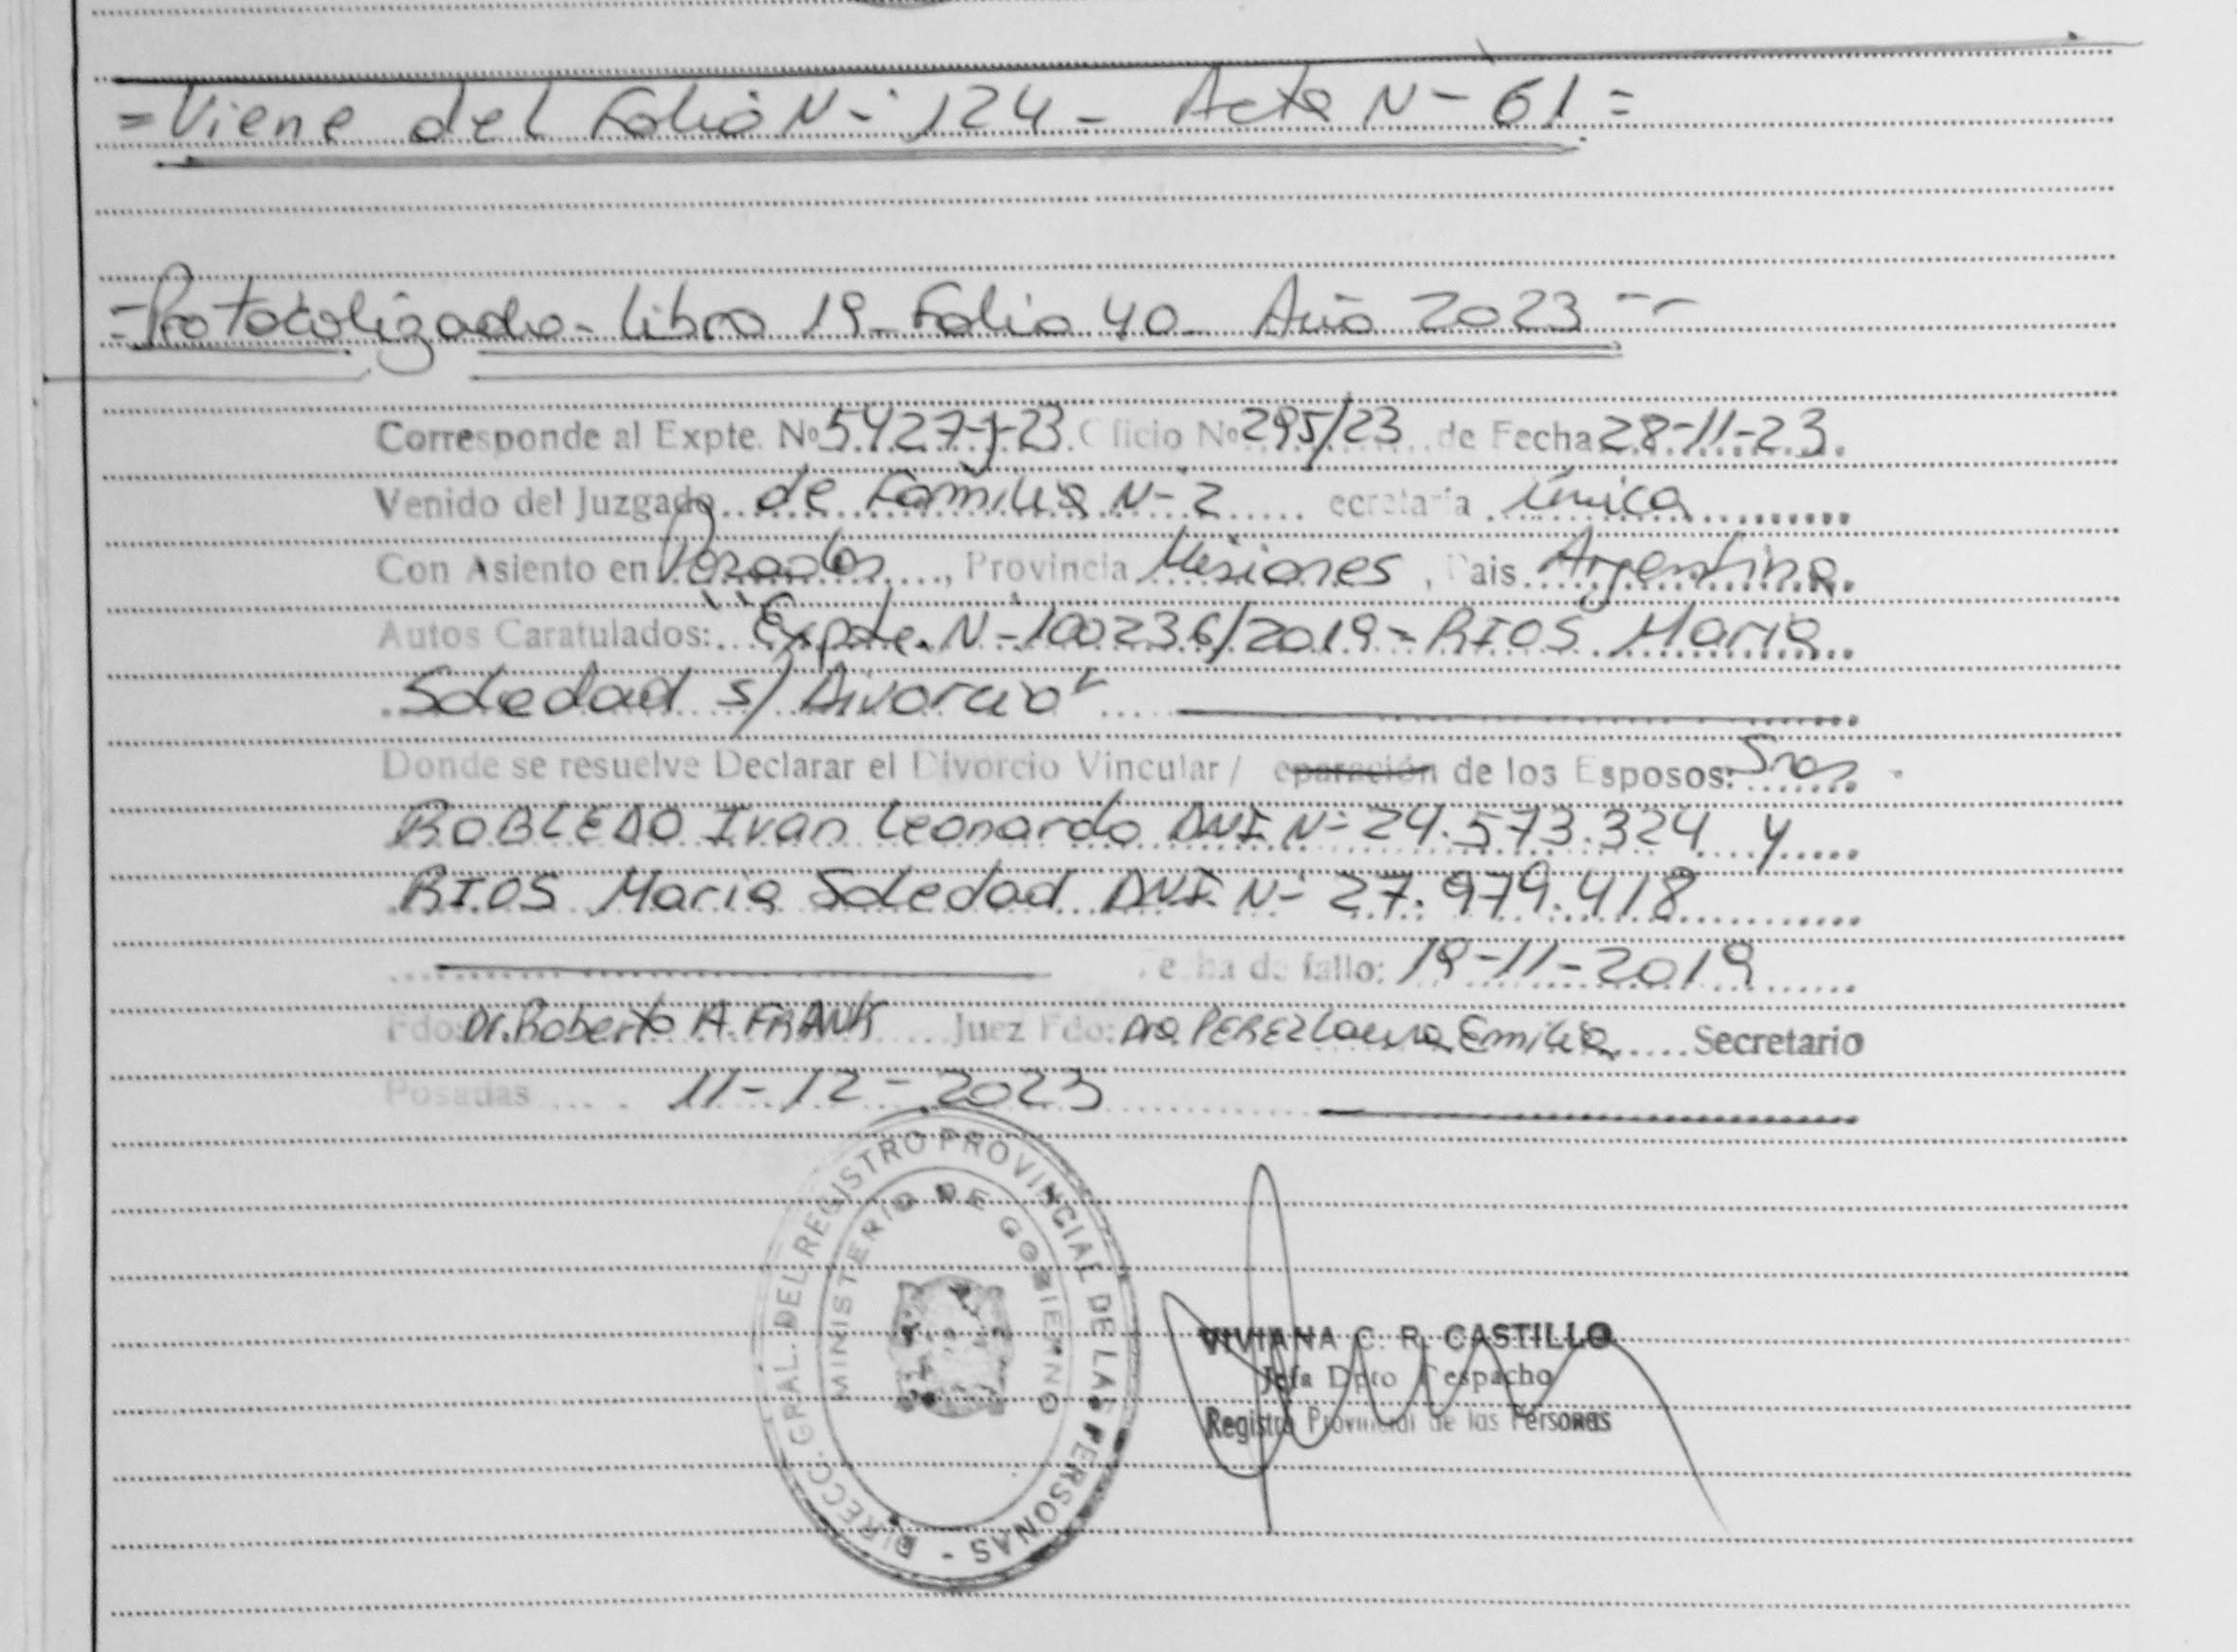 =Viene del Folio N-° 124 - Acta N-° 61.=
=Protocolizado- Libro 19- Folio 40- Año 2023--
Corresponde al Expte. Nº 5427-J-23. Oficio Nº 295/23 de Fecha 28-11-23.
Venido del Juzgado de Familia N-° 2 ecretaria Única
Con Asiento en Posadas, Provincia Misiones, Pais Argentina.
Autos Caratulados: "Expte. N-° 100236/2019- RIOS Maria
Soledad s/ Divorcio"
Donde se resuelve Declarar el Divorcio Vincular / eparación de los Esposos: Sres.
ROBLEDO Ivan Leonardo DNI N-° 24.573.324 y
RIOS Maria Soledad DNI N-° 27.979.418
Fecha de fallo: 19-11-2019
Fdo: Dr. Roberto A. FRANK Juez Fdo: Dra PEREZ Laura Emilia Secretario
Posadas 11-12-2023
DIRECC. GRAL. DEL REGISTRO PROVINCIAL DE LAS PERSONAS -
MINISTERIO DE GOBIERNO
VIVIANA C. R. CASTILLO
Jefa Dpto Despacho
Registro Provincial de las Personas